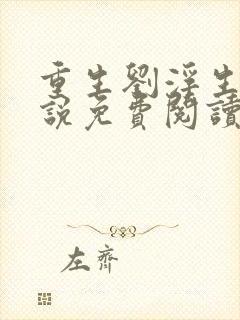 重生劉淫生
說免費閱讀
左齊